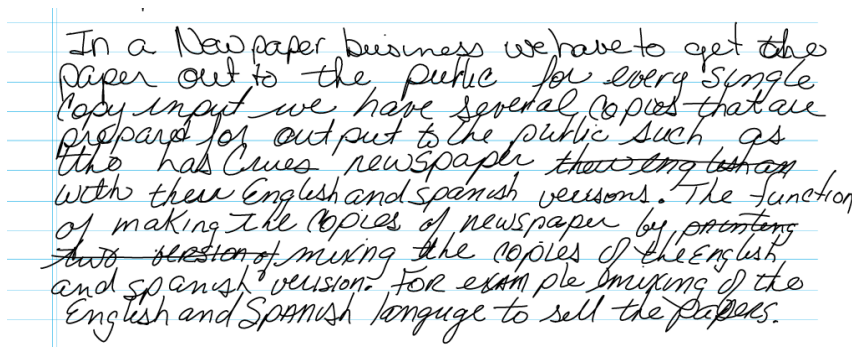 In a Newpaper business we have to get the
paper out to the public for every single
copy input we have several copies that are
prepard for output to the public such as
the has Crues newspaper
with their English and spanish versions. The function
of making the copies of newspaper by printing
two version of mixing the copies of the English
and spanish version. For example mixing of the
English and Spanish languge to sell the papers.